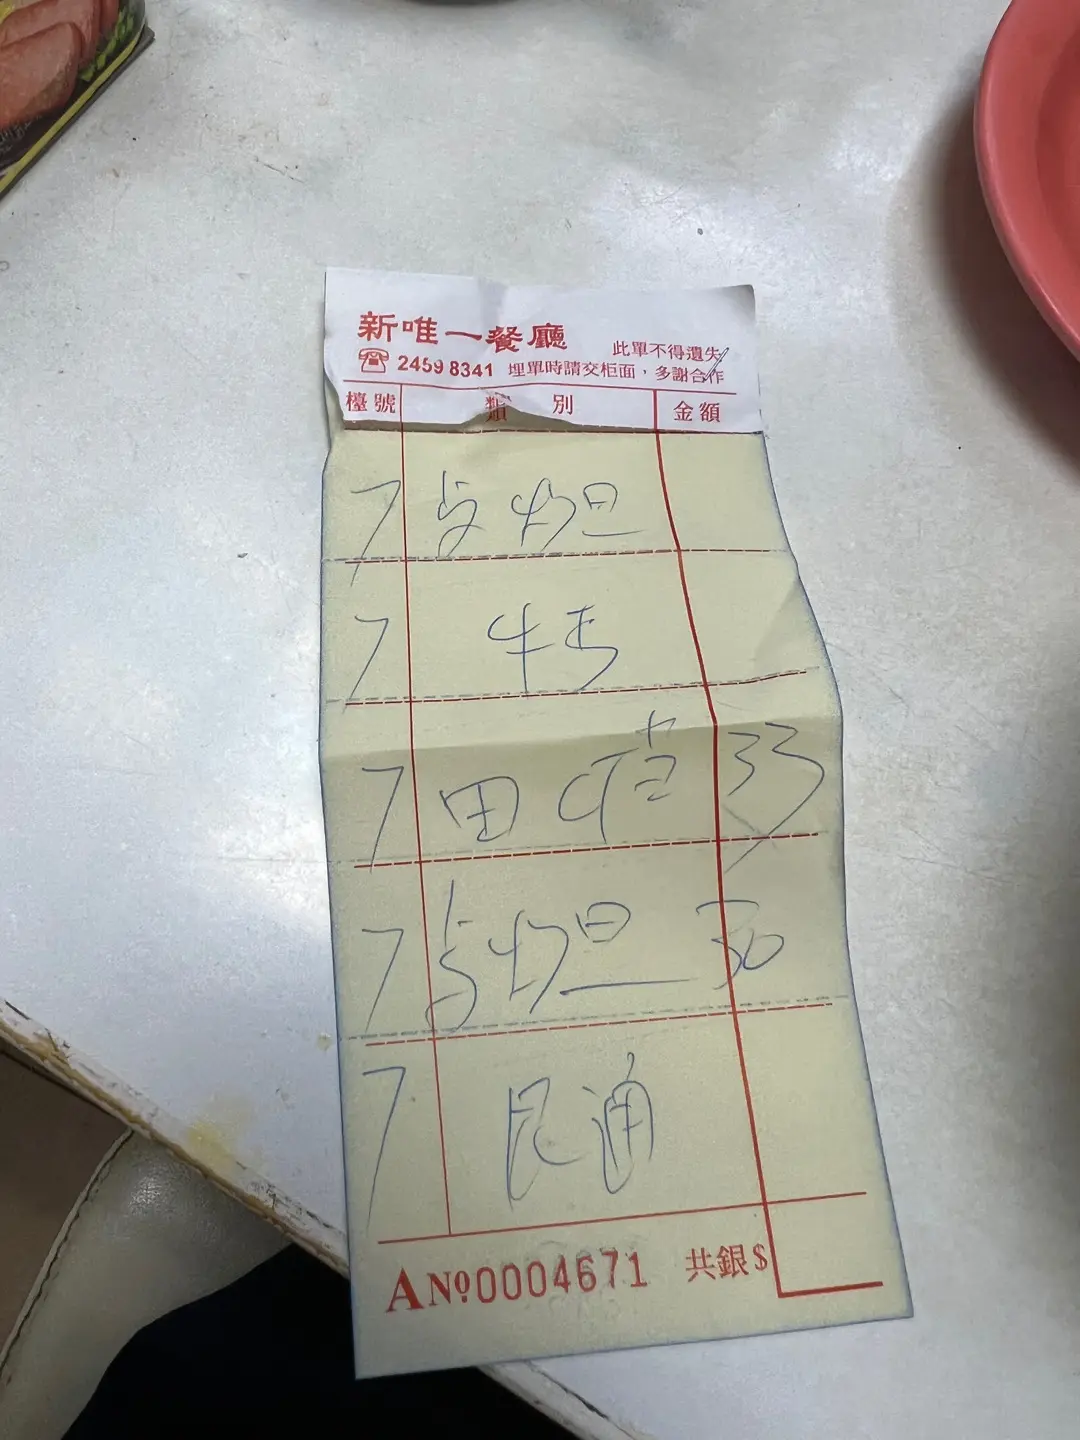 新唯一餐廳
此單不得遺失
2459 8341 埋單時請交柜面，多謝合作
檯號 類別 金額
7 占灼旦
7 牛丐
7 田 33
7 占灼旦 30
7
A No 0004671 共銀$